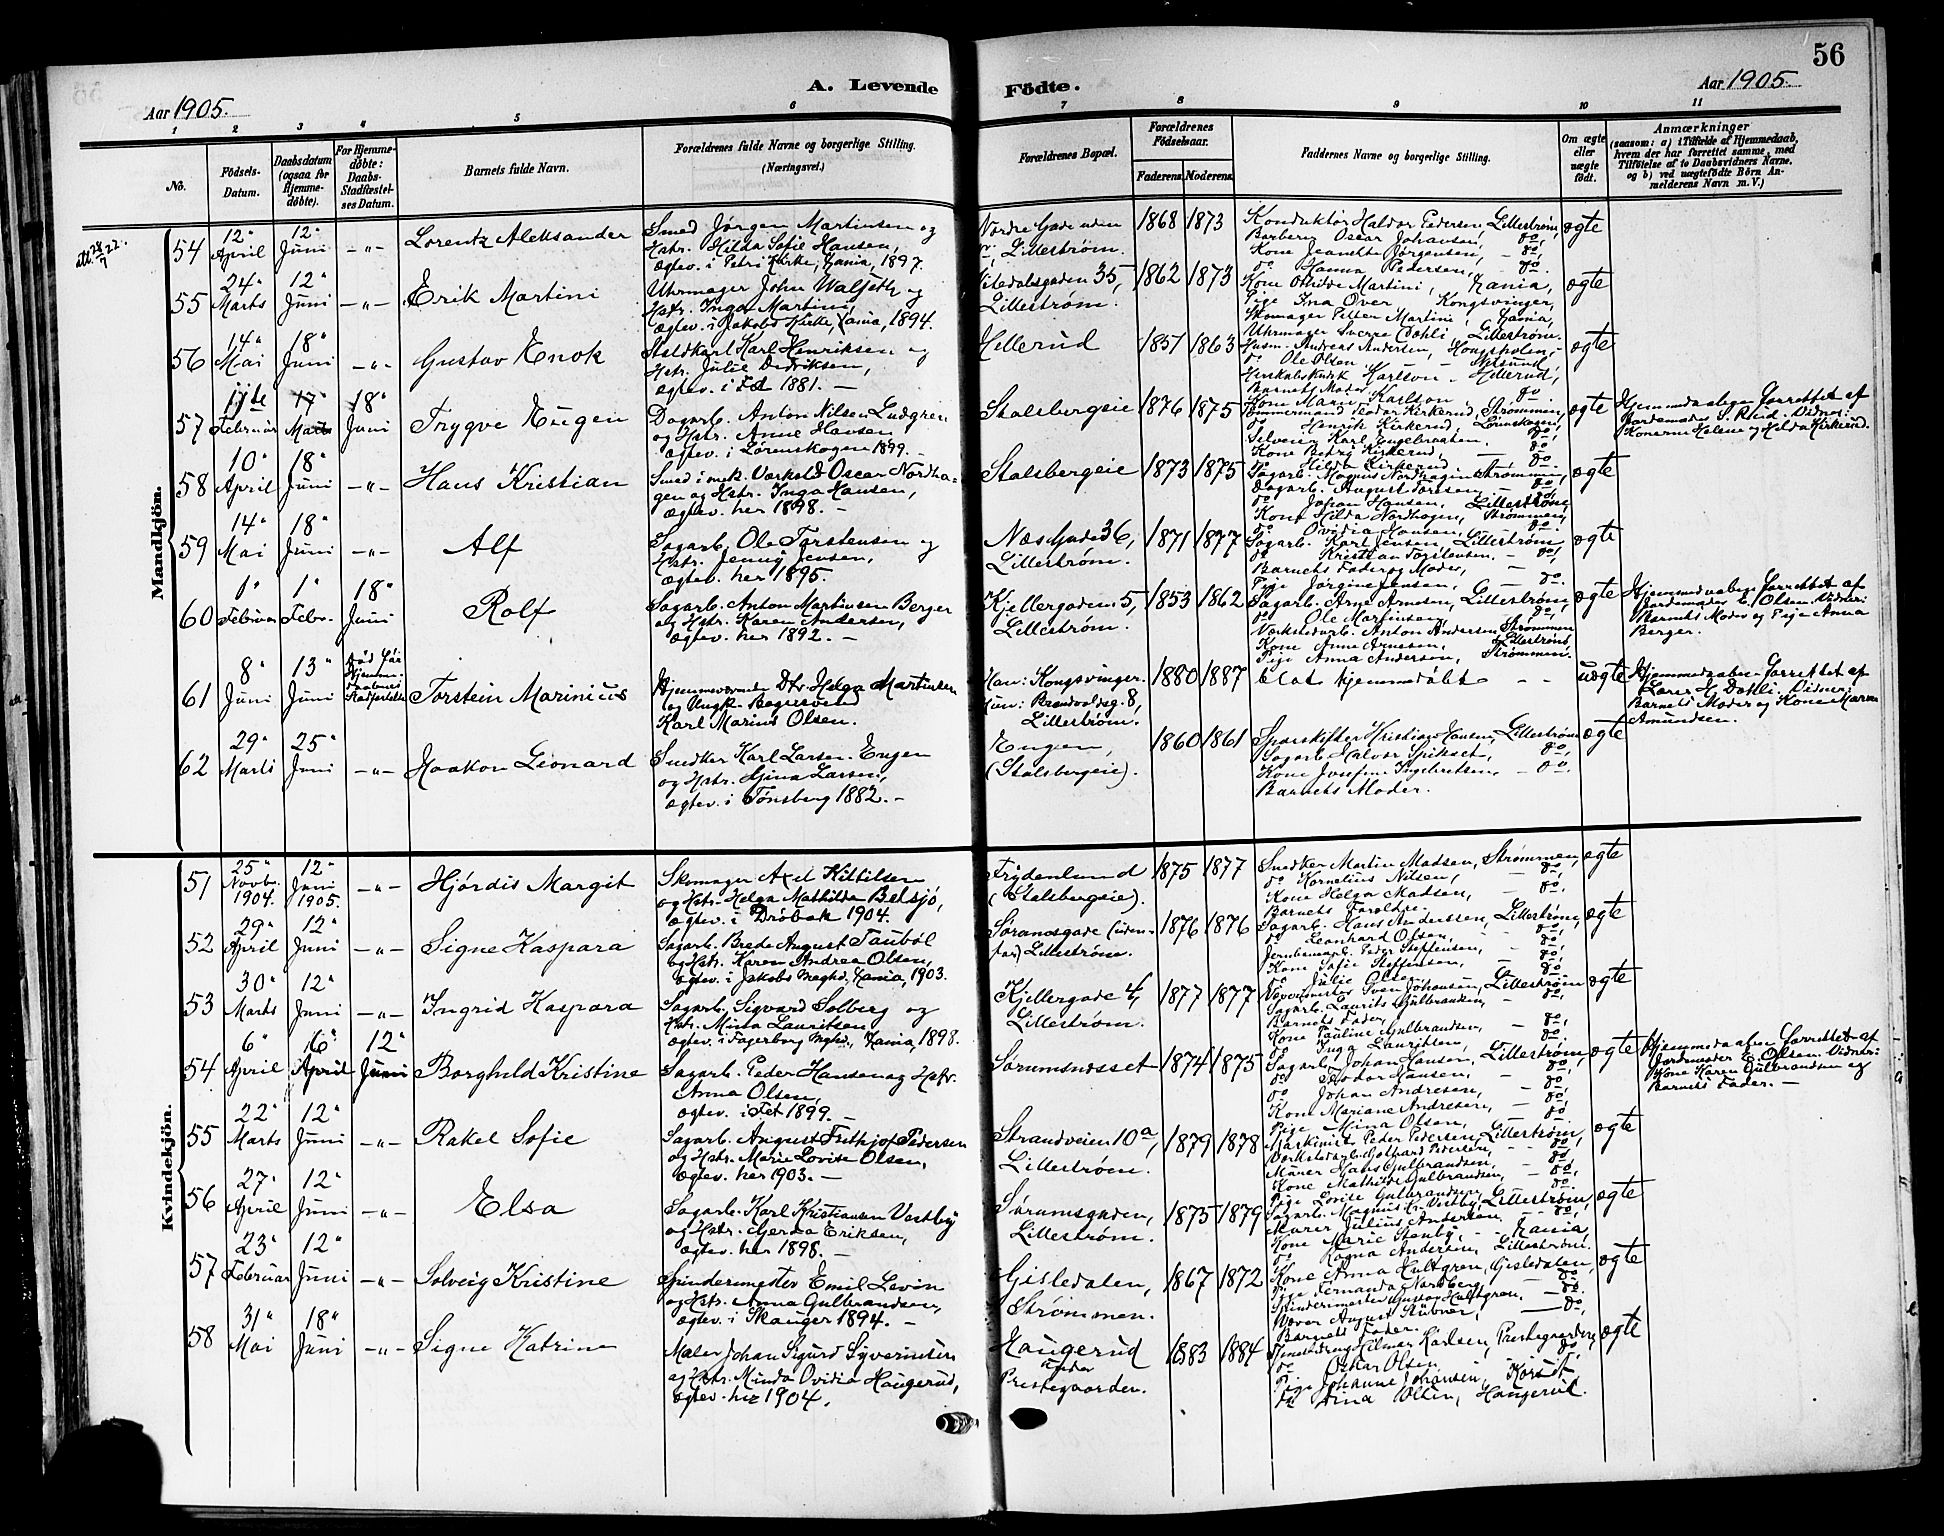 56
A. Levende Födte.
Aar 1905.
Aar 1905.
1 2 3 4 5 6 7 8 9 10 11
No.
Födsels-Datum.
Daabsdatum (ogsaa for Hjemmedöbte).
For Hjemmedöbte: Daabs-Stadfæstelses Datum.
Barnets fulde Navn.
Forældrenes fulde Navne og borgerlige Stilling.
(Næringsvei.)
Forældrenes Bopæl.
Forældrenes Födselsaar.
Faderens. Moderens.
Faddernes Navne og borgerlige Stilling.
Om ægte eller uægte født.
Anmærkninger
(saasom: a) i Tilfælde af Hjemmedaab, hvem der har forrettet samme, med Tilföielse af to Daabsvidners Navne. og b) ved uægtefödte Börn Anmelderens Navn m. V.)
Mandkjön.
att. 28/7 22.
54 12" April 12" Juni -"- Lorentz Aleksander
Smed Jørgen Martinsen og
Hstr. Hilda Sofie Hansen,
ægtev. i Petri Kirke, Xania, 1897.
Nordre Gade uden
Lillestrøm.
1868 1873
Konduktør Haldor Pedersen, Lillestrøm,
Barberer Oscar Johansen, do,
Kone Jeanette Jørgensen, - do,
do Hanna Pedersen, - do.
ægte
55 24" Marts 12" Juni -"- Erik Martini
Uhrmager John Walseth og
Hstr. Inga Martini,
ægtev. i Jakobs Kirke, Xania, 1894.
Nitedalsgaden 35,
Lillestrøm.
1862 1873
Kone Othilde Martini, Xania,
Pige Ina Over, Kongsvinger,
Skomager Petter Martini, Xania,
Uhrmager Sverre Dahli, Lillestrøm.
ægte
56 14" Mai 18" Juni -"- Gustav Enok
Staldkarl Karl Henriksen og
Hstr. Julie Didriksen,
ægtev. i Fet 1881. -
Hellerud
1857 1863
Husm. Andreas Andersen, Kongsholen,
do Ole Olsen - Nesund,
Karlson - Hellerud,
Barnets Moder
ægte
57 11te Februar 17" Marts 18" Juni Trygve Eugen
Dagarb. Anton Nilsen Ludgren
og Hstr. Anne Hansen
ægtev. i Lørenskogen 1899. -
Stalsbergeie
1876 1875
Kone Marie Karlson do
Tømmermand Teodor Kirkerud, Strømmen,
do Henrik Kirkerud, Lørenskogen,
Selveier Karl Engebraaten, do,
Kone Betzy Kirkerud, - do,
do Hilda Kirkerud - do.
ægte
Hjemmedaaben forrettet af
Jordemoder S. Reid. Vidner:
Konerne Helene og Hilda Kirkerud.
58 10" April 18" Juni -"- Hans Kristian
Smed i mek. Værksted Oscar Nordha-
gen og Hstr. Inga Hansen,
ægtev. her 1898. -
Stalsbergeie
1873 1875
Sagarb. Magnus Nordhagen, Strømmen
Dagarb. August Torgesen - do,
do Johan Hansen, Lillestrøm,
Kone Hilda Nordhagen, Strømmen,
do Ovidia Hansen, do.
ægte
59 14" Mai 18" Juni -"- Alf
Sagarb. Ole Torstensen og
Hstr. Jenny Jensen,
ægtev. her 1895.
Næs Gade 36,
Lillestrøm.
1871 1877
Sagarb. Karl Jensen, Lillestrøm
do Kristian Torstensen. - do,
Barnets Fader og Moder,
Pige Jørgine Jensen, - do.
ægte
60 1" Februar 1" Febr. 18" Juni Rolf
Sagarb. Anton Martinsen Berger
og Hstr. Karen Andersen,
ægtev. her 1892. -
Kjellergaden 5,
Lillestrøm.
1853 1862
Sagarb. Arne Arnesen, Lillestrøm,
do Ole Martinsen, do,
Værkstedarb. Anton Andersen, Strømmen
Kone Anne Arnesen, Lillestrøm,
Pige Anna Andersen, Strømmen.
ægte
Hjemmedaaben forrettet af
Jordemoder E. Olsen. Vidner:
Barnets Moder og Pige Anna
Berger.
61 8" Juni 13" Juni Død før Hjemmedaabens Stadfæstelse Torstein Marinius
Hjemmeværende Dtr. Helga Martinsen
og Ungk. Bagersvend
Karl Marius Olsen.
Han: Kongsvinger.
Hun: Brandvoldsg. 8,
Lillestrøm.
1880 1887
blot hjemmedøbt - -
uægte
Hjemmedaaben forrettet af
Lærer H. Dahli. Vidner:
Barnets Moder og Kone Maren
Amundsen.
62 29" Marts 25" Juni -"- Haakon Leonard
Snedker Karl Larsen Engen
og Hstr. Gina Larsen,
ægtev. i Tønsberg 1882. -
Engen,
(Stalsbergeie).
1860 1861
Sporskifter Kristian Hansen, Lillestrøm
Sagarb. Halvor Spikset, do,
Kone Josefine Ingebretsen, - do.
Barnets Moder.
ægte
Kvindekjön.
51 25" Novb. 1904. 12" Juni 1905. -"- Hjørdis Margit
Skomager Axel Kittilsen
og Hstr. Helga Mathilde Belsjø,
ægtev. i Drøbak 1904.
Frydenlund
(Stalsbergeie).
1875 1877
Snedker Martin Madsen, Strømmen,
do Kornelius Nilsen, - do,
Kone Helga Madsen, - do.
Barnets Forældre.
ægte
52 29" April 12" Juni -"- Signe Kaspara
Sagarb. Brede August Taubøl
og Hstr. Karen Andrea Olsen,
ægtev. i Jakobs Meghd., Xania, 1903.
Sørumsgade (uden-
for) Lillestrøm.
1876 1876
Sagarb. Hans Andersen, Lillestrøm,
do Leonhard Olsen, - do,
Jernbanearb. Peder Steffensen, do,
Kone Sofie Steffensen, - do,
do Julie Olsen - do.
ægte
53 30" Marts 12" Juni -"- Ingrid Kaspara
Sagarb. Sigvard Solberg og
Hstr. Minta Lauritsen
ægtev. i Fagerborg Meghd., Xania, 1898.
Kjellergade 4,
Lillestrøm.
1877 1877
Vævermester Sven Johansen, Lillestrøm
Sagarb. Laurits Gulbrandsen, - do,
Barnets Fader,
Kone Pauline Gulbrandsen, - do,
do Inga Lauritsen - do.
ægte
54 6" April 16" April 12" Juni Borghild Kristine
Sagarb. Peder Hansen og Hstr.
Anna Olsen,
ægtev. i Fet 1899. -
Sørumsnesset
1874 1875
Sagarb. Johan Hansen, Lillestrøm,
do Teodor Hansen, do,
do Johan Andresen, - do,
Kone Mariane Andresen, - do,
Pige Mina Olsen, - do.
ægte
Hjemmedaaben forrettet af
Jordemoder E. Olsen. Vidner:
Kone Karen Gulbrandsen og
Barnets Fader. -
55 22" Marts 12" Juni -"- Rakel Sofie
Sagarb. August Frithjof Pedersen
og Hstr. Marie Lovise Olsen,
ægtev. her 1903. -
Strandveien 10a,
Lillestrøm.
1879 1878
Maskinist Peder Pedersen, Lillestrøm,
Værkstedarb. Gothard Pedersen, - do,
Murer Hans Gulbrandsen, do,
Kone Mathilde Gulbrandsen, do,
Pige Lovise Gulbrandsen do.
ægte
56 27" April 12" Juni -"- Elsa
Sagarb. Karl Kristiansen Vestby
og Hstr. Gerda Eriksen,
ægtev. her 1898. -
Sørumsgaden,
Lillestrøm.
1875 1879
Sagarb. Magnus Kr. Vestby, Lillestrøm,
Murer Julius Andersen - do,
Kone Marie Stenby, - Xania,
do Ragna Andersen, Lillestrøm.
ægte
57 23" Februar 12" Juni -"- Solveig Kristine
Spindermester Emil Levin
og Hstr. Anna Gulbrandsen,
ægtev. i Skauger 1894. -
Gisledalen,
Strømmen.
1867 1872
Kone Anna Hultgren, Gisledalen,
Pige Fernanda Nordberg, do,
Spindermester Gustav Hultgren, - do,
Væver August Hübner, - do,
Barnets Fader.
ægte
58 31" Mai 18" Juni -"- Signe Katrine
Maler Johan Sigurd Syverinsen
og Hstr. Minda Ovidia Haugerud,
ægtev. her 1904.
Haugerud
under
Prestegaarden.
1883 1884
Hilmar Karlsen, Prestegaarden,
do Oskar Olsen do
Pige Johanne Johansen,
do Anna Olsen, Haugerud.
ægte